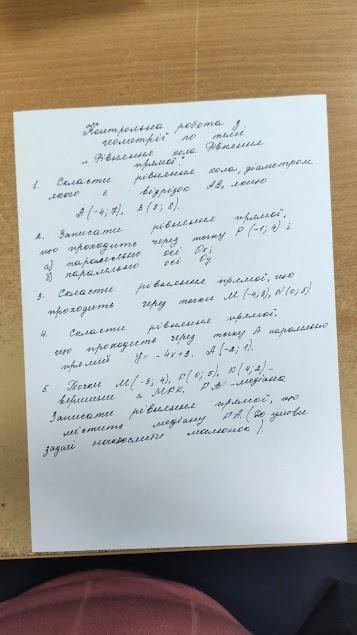 Контрольна робота з
геометрії по темі
„Рівняння кола. Рівняння
прямої."
1. Скласти рівняння кола, діаметром
якого є відрізок AB, якщо
A(-4; 7), B(2; 8).
2. Записати рівняння прямої,
що проходить через точку P(-1; 4) і
а) паралельно осі Ox;
б) паралельно осі Oy
3. Скласти рівняння прямої, що
проходить через точки M(-4; 3), N(0; 5)
4. Скласти рівняння прямої,
що проходить через точку A паралельно
прямій y = -4x+2. A(-2; 1).
5. Точки M(-3; 4), P(0; 5), K(4; 2) –
вершини
Записати рівняння прямої, що
містить медіану PA. (До умови
задачі накреслити малюнок).